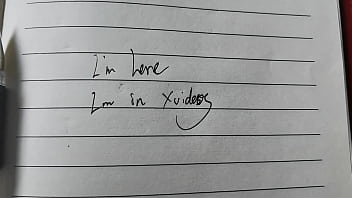 I'm here
Im in Xvideos